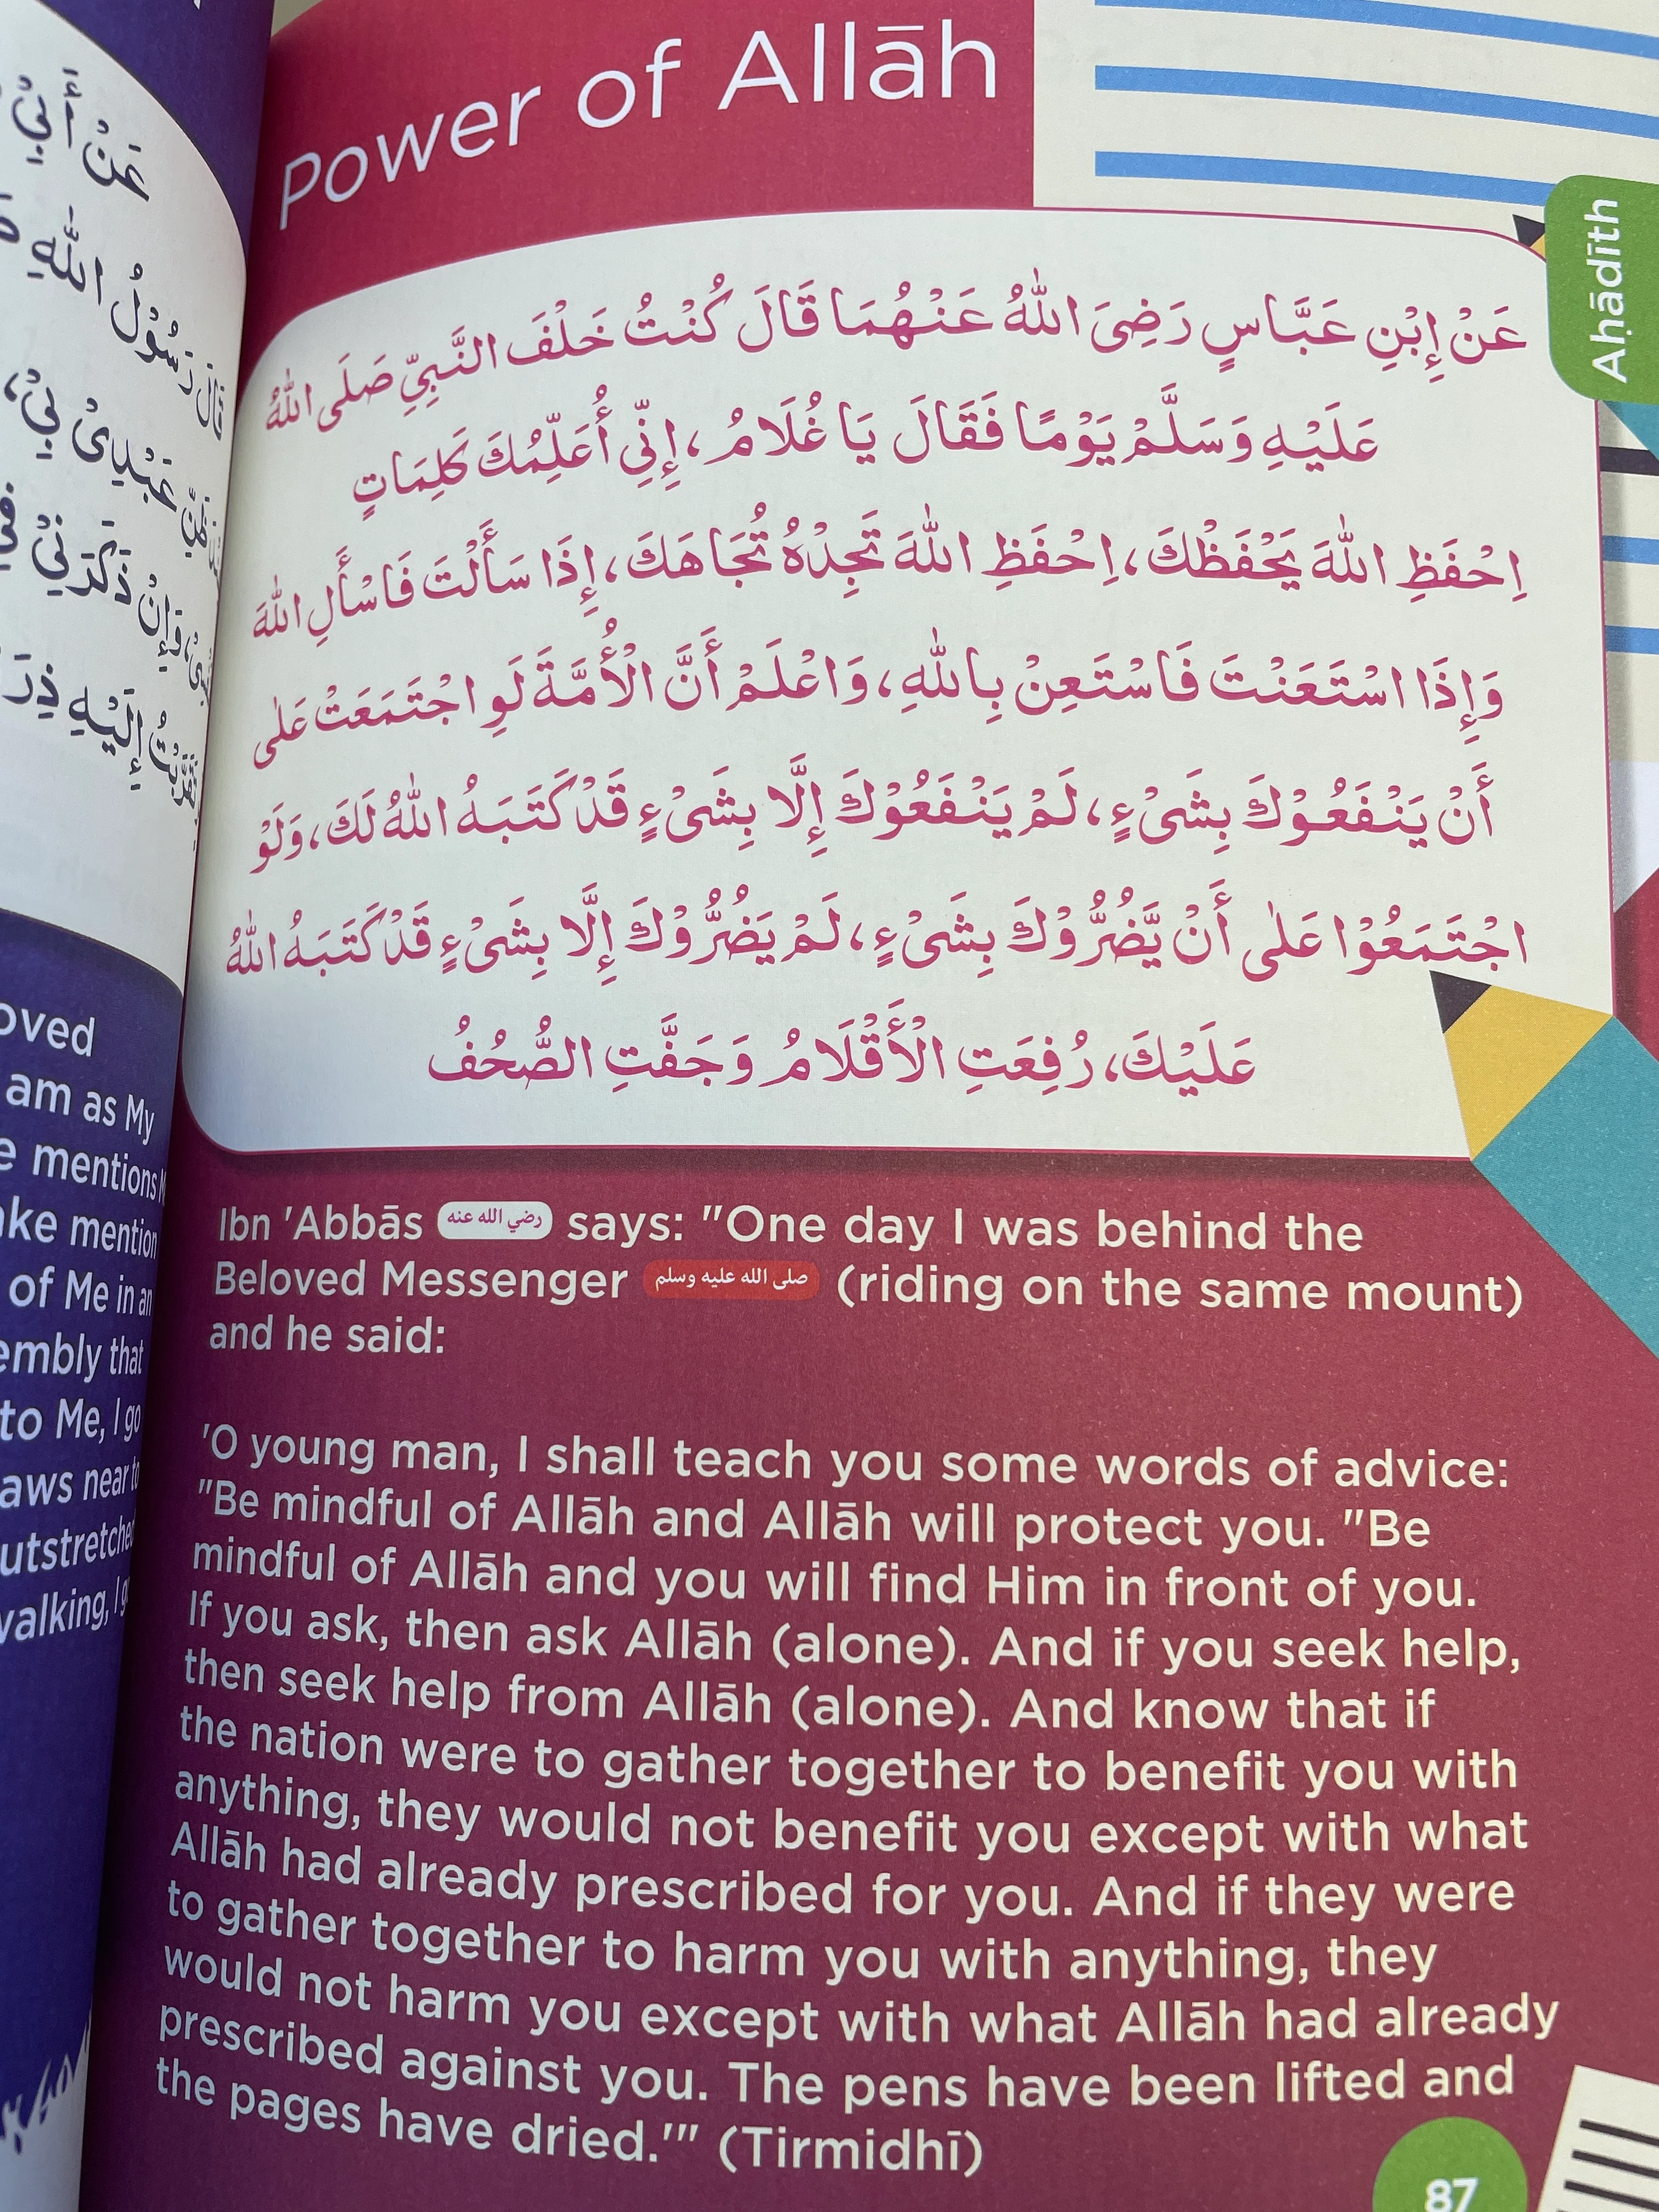 Power of Allāh
Aḥādīth
عَنْ إِبْنِ عَبَّاسٍ رَضِىَ اللّٰهُ عَنْهُمَا قَالَ كُنْتُ خَلْفَ النَّبِيِّ صَلَى اللّٰهُ
عَلَيْهِ وَسَلَّمْ يَوْمًا فَقَالَ يَا غُلَامُ، إِنِّي أُعَلِّمُكَ كَلِمَاتٍ
اِحْفَظِ اللّٰهَ يَحْفَظْكَ، اِحْفَظِ اللّٰهَ تَجِدْهُ تُجَاهَكَ، إِذَا سَأَلْتَ فَاسْأَلِ اللّٰهَ
وَإِذَا اسْتَعَنْتَ فَاسْتَعِنْ بِاللّٰهِ، وَاعْلَمْ أَنَّ الْأُمَّةَ لَوِ اجْتَمَعَتْ عَلٰى
أَنْ يَنْفَعُوْكَ بِشَىْءٍ، لَمْ يَنْفَعُوْكَ إِلَّا بِشَىْءٍ قَدْ كَتَبَهُ اللّٰهُ لَكَ، وَلَوْ
اجْتَمَعُوْا عَلٰى أَنْ يَّضُرُّوْكَ بِشَىْءٍ، لَمْ يَضُرُّوْكَ إِلَّا بِشَىْءٍ قَدْ كَتَبَهُ اللّٰهُ
عَلَيْكَ، رُفِعَتِ الْأَقْلَامُ وَجَفَّتِ الصُّحُفُ
Ibn 'Abbās رضي الله عنه says: "One day I was behind the
Beloved Messenger صلى الله عليه وسلم (riding on the same mount)
and he said:
'O young man, I shall teach you some words of advice:
"Be mindful of Allāh and Allāh will protect you. "Be
mindful of Allāh and you will find Him in front of you.
If you ask, then ask Allāh (alone). And if you seek help,
then seek help from Allāh (alone). And know that if
the nation were to gather together to benefit you with
anything, they would not benefit you except with what
Allāh had already prescribed for you. And if they were
to gather together to harm you with anything, they
would not harm you except with what Allāh had already
prescribed against you. The pens have been lifted and
the pages have dried.'" (Tirmidhī)
87
عَنْ أَبِيْ
قَالَ رَسُوْلُ اللّٰهِ
ظَنِّ عَبْدِىْ بِيْ،
فَإِنْ ذَكَرَنِيْ فِيْ
إِلَيْهِ
am as My
mentions
mention
of Me in an
that
to Me, I go
near to
walking, I